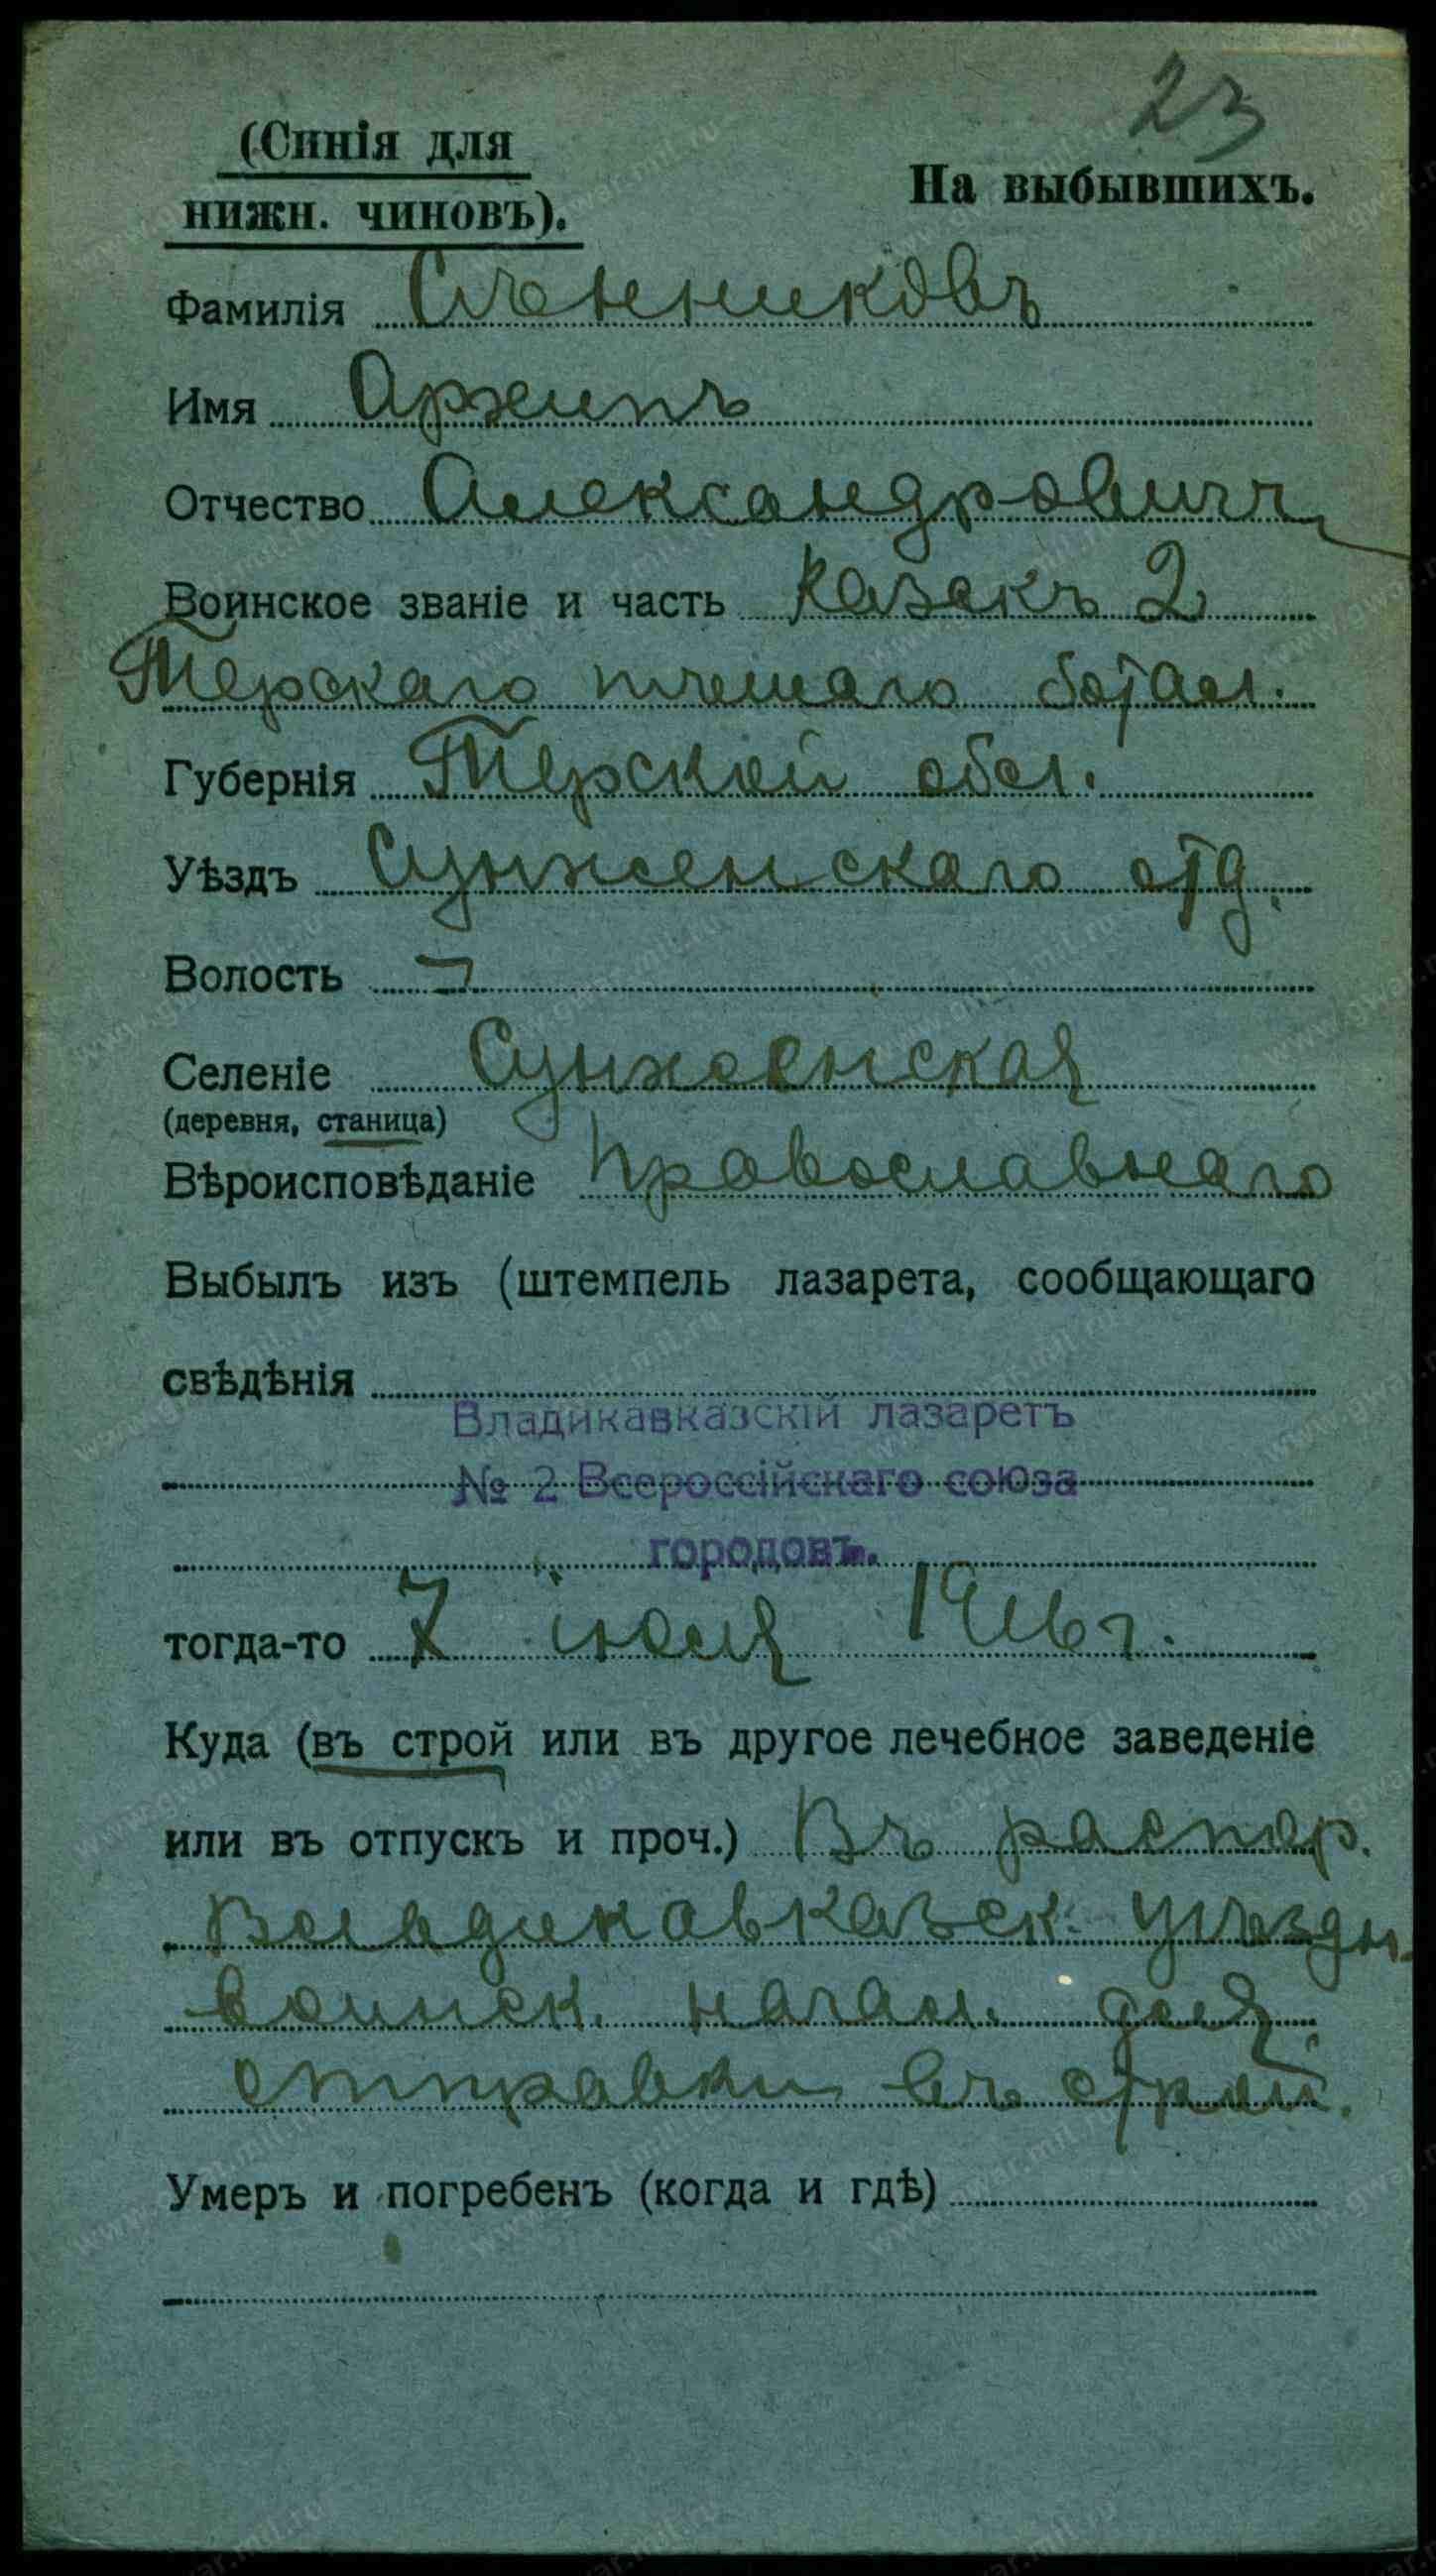 23
(Синія для
нижн. чиновъ).
На выбывшихъ.
Фамилія Сѣнниковъ
Имя Архипъ
Отчество Александровичъ
Воинское званіе и часть Казакъ 2
Терскаго пѣшаго батал.
Губернія Терской обл.
Уѣздъ Сунженскаго отд.
Волость —
Селеніе Сунженская
(деревня, станица)
Вѣроисповѣданіе Православнаго
Выбылъ изъ (штемпель лазарета, сообщающаго
свѣдѣнія
Владикавказскій лазаретъ
№ 2 Всероссійскаго союза
городовъ.
тогда-то 7 іюля 1916 г.
Куда (въ строй или въ другое лечебное заведеніе
или въ отпускъ и проч.) Въ распор.
Владикавказск. уѣздн.
воинск. начал. для
отправки въ строй.
Умеръ и погребенъ (когда и гдѣ)
www.gwar.mil.ru